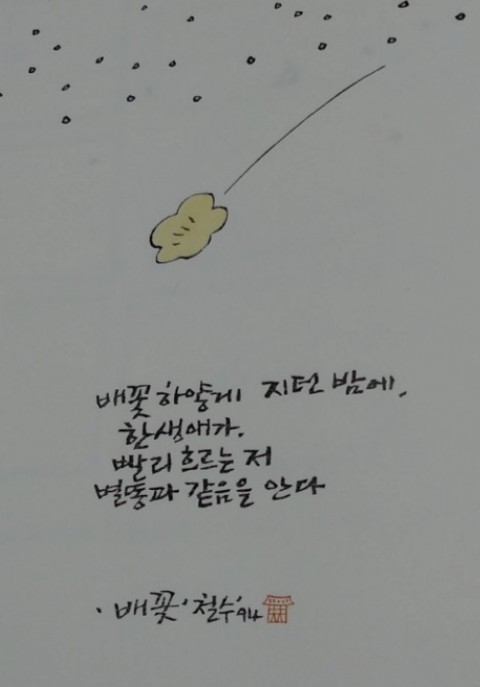 배꽃 하얗게 지던 밤에,
한생애가.
빨리 흐르는 저
별똥과 같음을 안다
· 배꽃 · 철수 '94